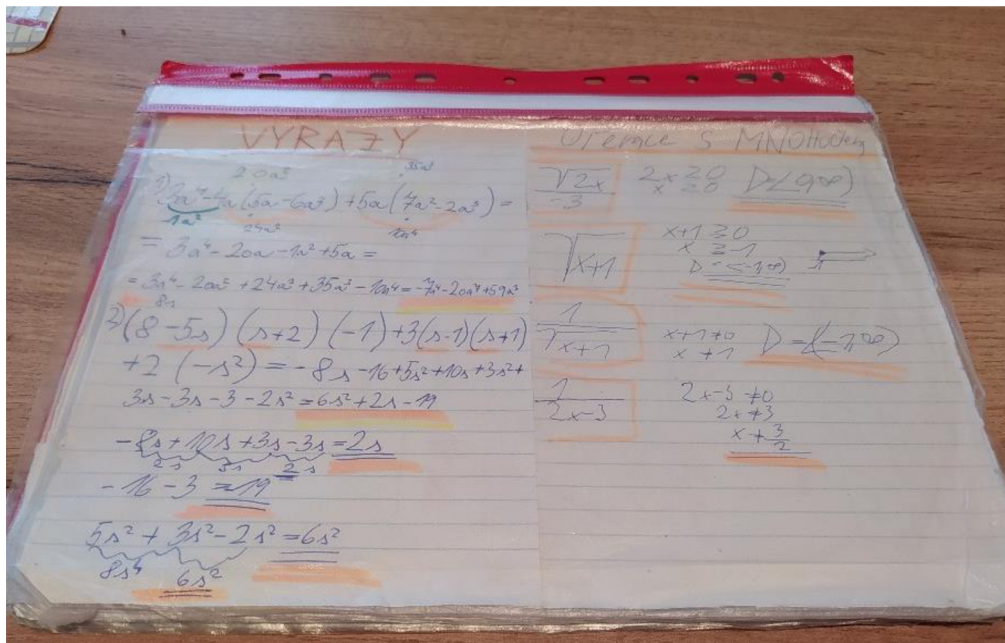 VÝRAZY
20a³ 35a³
1) 3a⁴-4a(5a-6a²)+5a(7a²-2a³)=
1a² 24a³ 10a⁴
= 3a⁴-20a-1a²+5a=
= 3a⁴-20a²+24a³+35a³-10a⁴=-7a⁴-20a²+59a³
8s
2) (8-5s)(s+2)(-1)+3(s-1)(s+1)
+2(-s²)=-8s-16+5s²+10s+3s²+
3s-3s-3-2s²=6s²+2s-19
-8s+10s+3s-3s=2s
2s 3s 2s
-16-3=-19
5s²+3s²-2s²=6s²
8s⁴ 6s²
s MNOŽINAMI
√2x / -3 2x≥0 D=<0,∞)
x≥0
√x+1 x+1≥0
x≥-1
D=<-1,∞)
-1
1 / √x+1 x+1≠0 D=(-1,∞)
x≠1
1 / 2x-3 2x-3≠0
2x≠3
x≠3/2